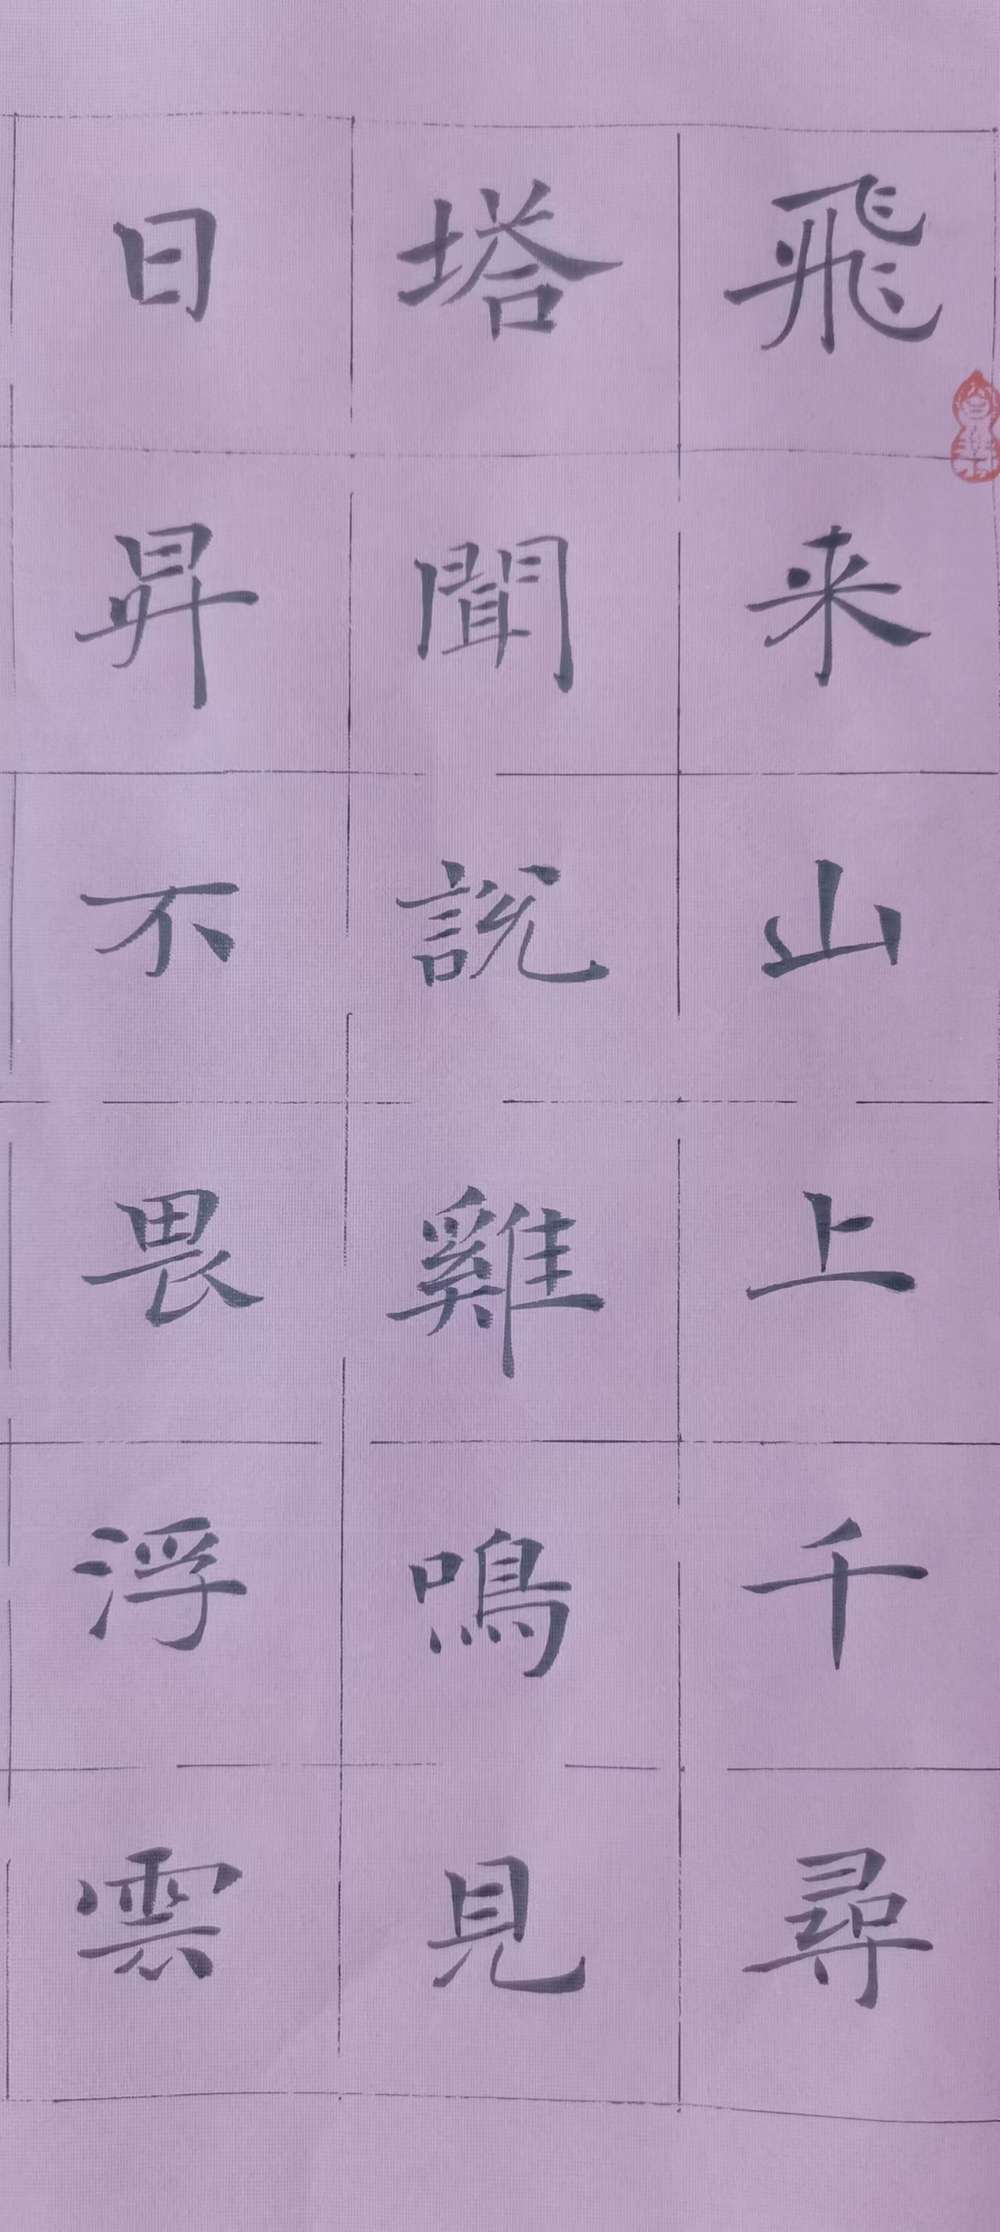 飛来山上千尋
塔聞説雞鳴見
日昇不畏浮雲